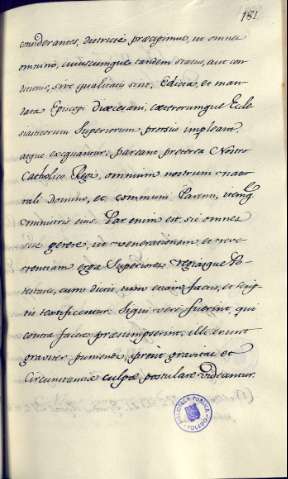 151
considerantes, districtè præcipimus, ut omnes
omnino, cuiuscumque tandem status, aut con
ditionis, sive qualitatis sint, Edicta, et man
data Episcopi Diœcesani, cæterorumque Eccle
siasticorum Superiorum prorsus impleant,
atque exequantur, pareant præterea Nostro
Catholico Regi, omnium nostrum natu
rali Domino, et communi Parenti,
ministris eius. Par enim est, sic omnes
se gerere, ut venerationem et reve
rentiam erga Superiores, Regiamque Po
testatem, cum dictis, tum etiam factis, et
testificentur. Siqui vero fuerint, qui
contra facere præsumpserint, illi erunt
graviter puniendi, prout gravitas et
circumstantiæ culpæ postulare videantur.
BIBLIOTECA PUBLICA
TOLEDO